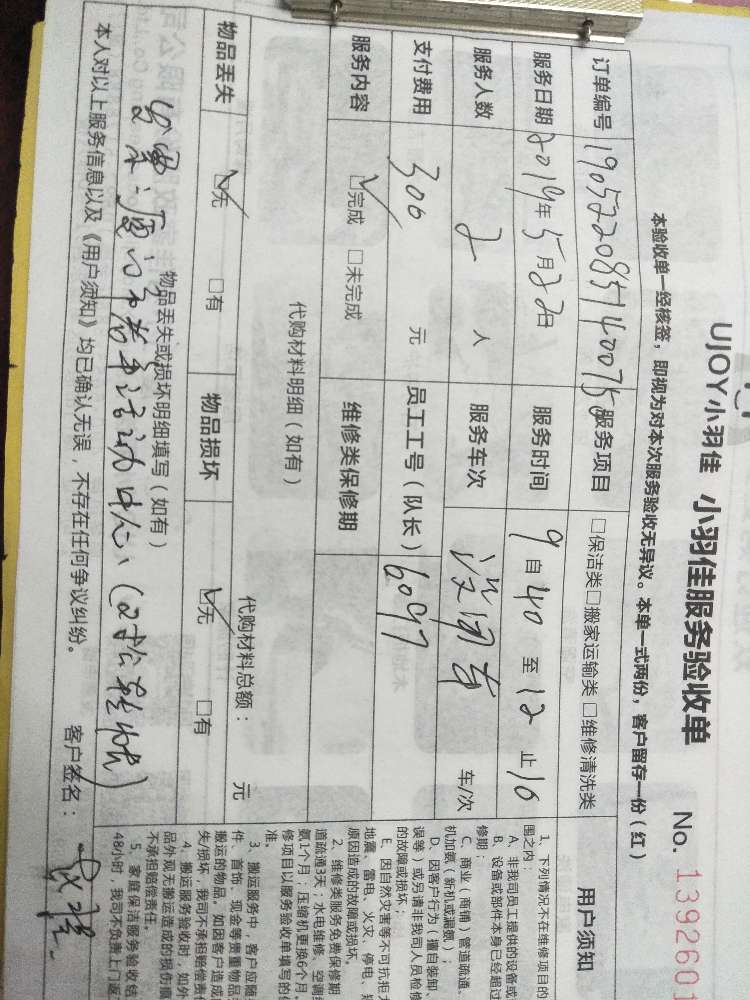 UJOY小羽佳 小羽佳服务验收单 No. 1392601
本验收单一经核签，即视为对本次服务验收无异议。本单一式两份，客户留存一份（红）
订单编号 190522085140075 服务项目 □保洁类□搬家运输类□维修清洗类
服务日期 2019年5月22日 服务时间 9 自 40 至 12 止 10
服务人数 2 人 服务车次 车/次
支付费用 300 元 员工工号（队长） 6097
服务内容 ☑完成 □未完成 维修类保修期
代购材料明细（如有） 代购材料总额： 元
物品丢失 ☑无 □有 物品损坏 ☑无 □有
物品丢失或损坏明细填写（如有）
本人对以上服务信息以及《用户须知》均已确认无误，不存在任何争议纠纷。 客户签名：
用户须知
1、下列情况不在维修项目的
围之内：
A、非我司员工提供的设备或
B、设备或部件本身已经超过
修期；
C、商业（商铺）管道疏通、
机加氨（新机或漏氨）；
D、因客户行为（擅自装卸、
误等）或另请非我司人员检修
的故障或损坏；
E、因自然灾害等不可抗拒
地震、雷电、火灾、停电、
原因造成的故障或损坏。
2、维修类服务免费保修期
道疏通3天；水电维修、空调
氨1个月；压缩机更换6个月，
修项目以服务验收单填写的
准。
3、搬运服务中，客户应随
件、首饰、现金等贵重物品
搬运的物品。如因客户造成
失/损坏，我司不承担赔偿责
4、搬运服务验收时，如外
品外观无搬运造成的损伤
不承担赔偿责任。
5、家庭保洁服务验收
48小时，我司不负责上门返